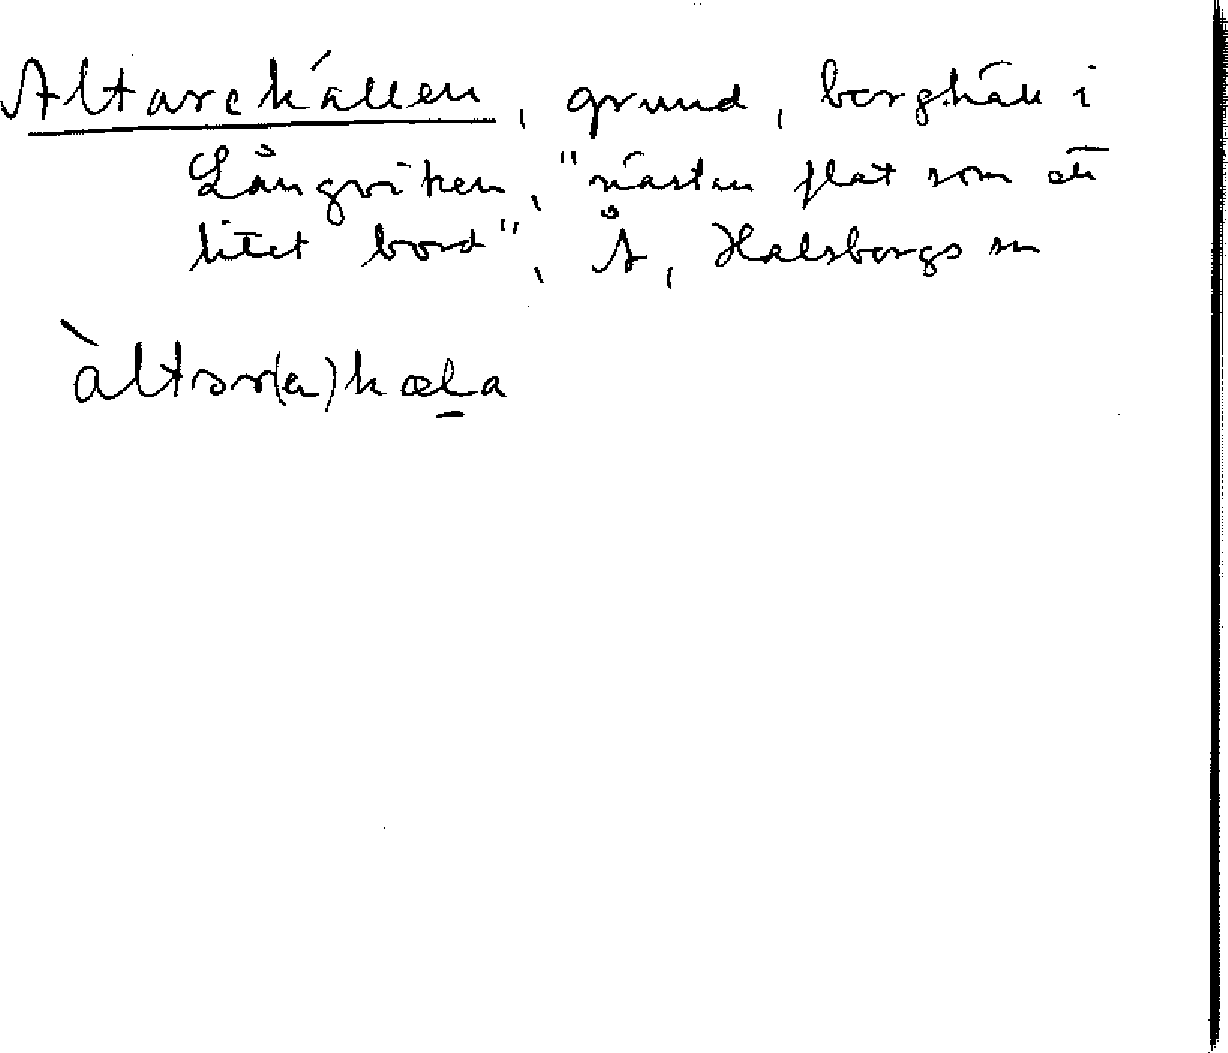 Altarehällen, grund, berghäll i
Långviken, "nästan flat som ett
litet bord", Å, Halsbergs sn
àltɔr(a)hæla